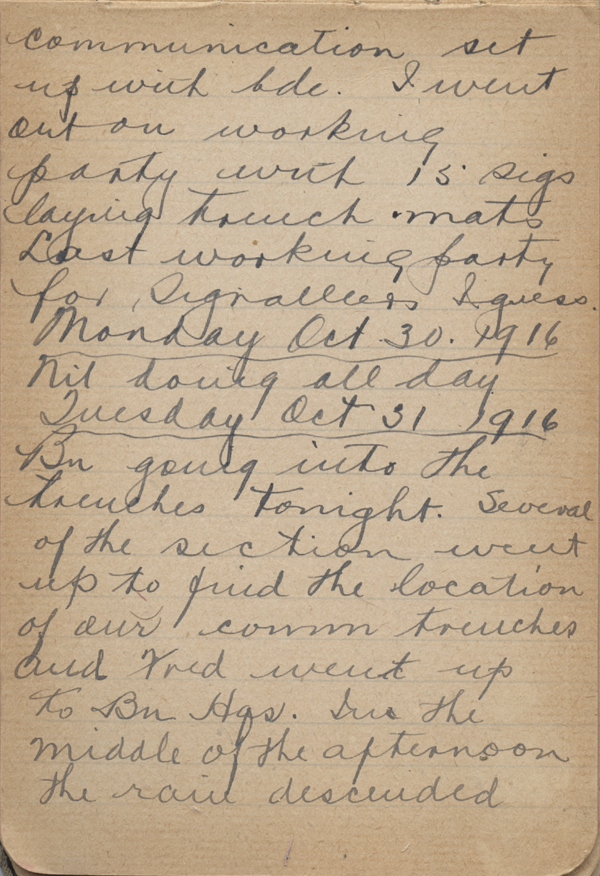 communication set
up with bde. I went
out on working
party with 15 sigs
laying trench mats
Last working party
for Signallers I guess.
Monday Oct. 30. 1916
Nil doing all day
Tuesday Oct 31 1916
Bn going into the
trenches tonight. Several
of the section went
up to find the location
of our comm trenches
and Fred went up
to Bn Hqs. In the
middle of the afternoon
the rain descended